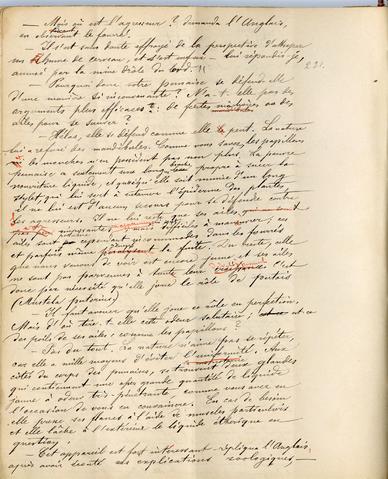 — Mais où est l'agresseur ? demanda l'Anglais,
en observant le fourré.
— Il s'est sans doute effrayé de la perspective d'attraper
un rhume de cerveau, et s'est enfui — lui répondis-je,
amusé par la mine drôle du lord.
221.
— Pourquoi donc votre punaise se défend-elle
d'une manière si inconvenante ? N'a-t-elle pas des
arguments plus efficaces ? : de fortes mâchoires ou des
ailes pour se sauver ?
— Hélas, elle se défend comme elle le peut. La nature
lui a refusé des mandibules. Comme vous savez, les papillons
et les mouches n'en possèdent pas non plus. La pauvre
punaise a seulement une longue trompe propre à sucer la
nourriture liquide, et quoiqu'elle soit munie d'un long
stylet, qui lui sert à entamer l'épiderme des plantes,
il ne lui est d'aucun secours pour se défendre contre
ses agresseurs. Il ne lui reste que ses ailes, qui
mais difficiles à ; ces
ailes sont cependant incommodes dans les fourrés
et parfois même la fuite. Du reste, elle
que nous venons de voir est encore jeune et ses ailes
ne sont pas parvenues à toute leur . C'est
donc par nécessité qu'elle joue le rôle de putois
(Mustela putorius)
— Il faut avouer qu'elle joue ce rôle en perfection.
Mais d'où tire-t-elle cette odeur salutaire ; est-ce
des poils de ses ailes, comme les papillons ?
— Pas du tout. La nature n'aime pas se répéter,
car elle a mille moyens d'éviter l'uniformité. Aux
côtés du corps des punaises, se trouvent deux glandes
qui contiennent une assez grande quantité de liquide
jaune à odeur très-pénétrante comme vous avez eu
l'occasion de vous en convaincre. En cas de besoin
elle presse ses glandes à l'aide de muscles particuliers
et elle lâche à l'extérieur le liquide éthérique en
question.
— Cet appareil est fort intéressant — répliqua l'Anglais,
après avoir écouté ces explications zoologiques —